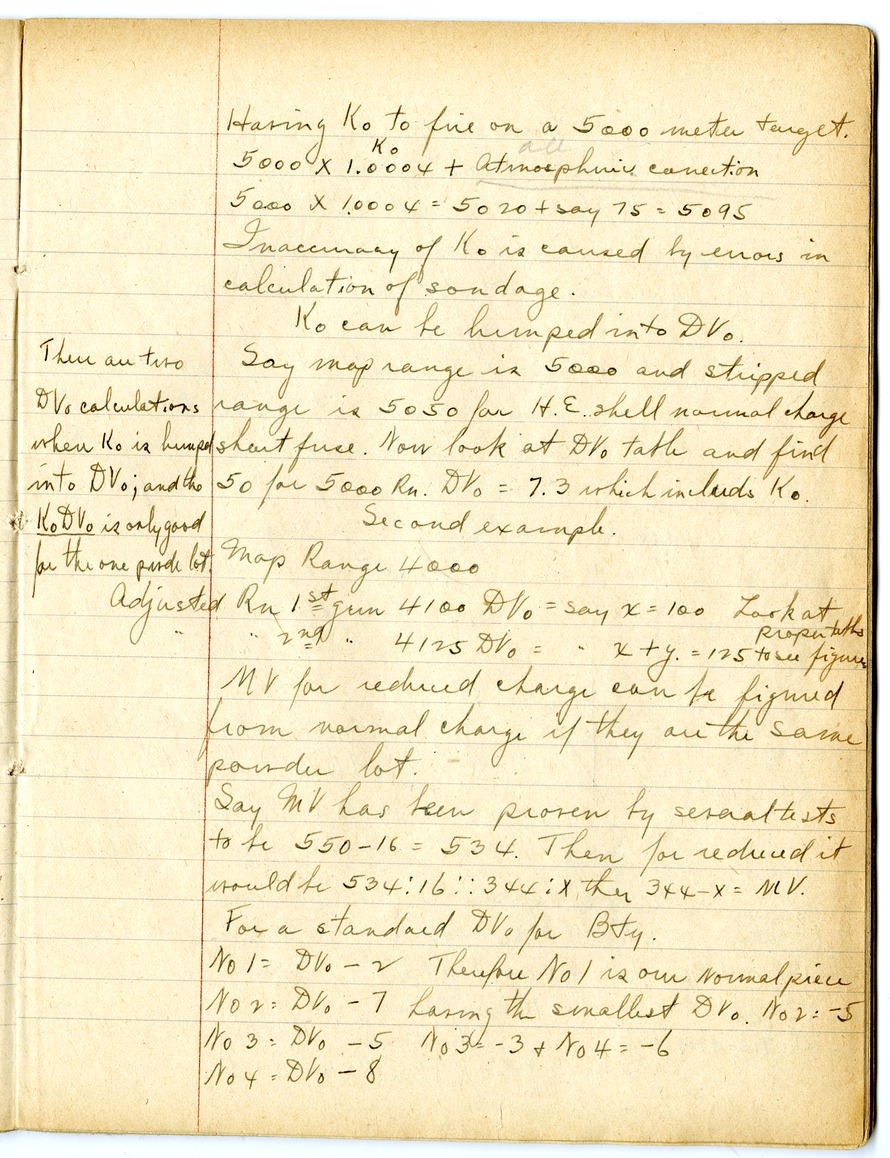 Having Ko to fire on a 5000 meter target.
Ko all
5000 X 1.0004 + Atmospheric correction
5000 X 1.0004 = 5020 + say 75 = 5095
Inaccuracy of Ko is caused by errors in
calculation of sondage.
Ko can be lumped into DVo.
Say map range is 5000 and stripped
range is 5050 for H.E. shell normal charge
short fuse. Now look at DVo table and find
50 for 5000 Rn. DVo = 7.3 which includs Ko.
There are two
DVo calculations
when Ko is lumped
into DVo; and the
KoDVo is only good
for the one powder lot.
Second example.
Map Range 4000
Adjusted Rn 1st gun 4100 DVo = say x = 100 Look at
" " 2nd " 4125 DVo = " x + y. = 125 to see figures
proper tables
MV for reduced charge can be figured
from normal charge if they are the same
powder lot.
Say MV has been proven by several tests
to be 550-16 = 534. Then for reduced it
would be 534:16::344:x then 344-x = MV.
For a standard DVo for Bty.
No 1 = DVo - 2 Therefore No 1 is our normal piece
No 2 = DVo - 7 having the smallest DVo. No 2 = -5
No 3 = DVo - 5 No 3 = -3 & No 4 = -6
No 4 = DVo - 8